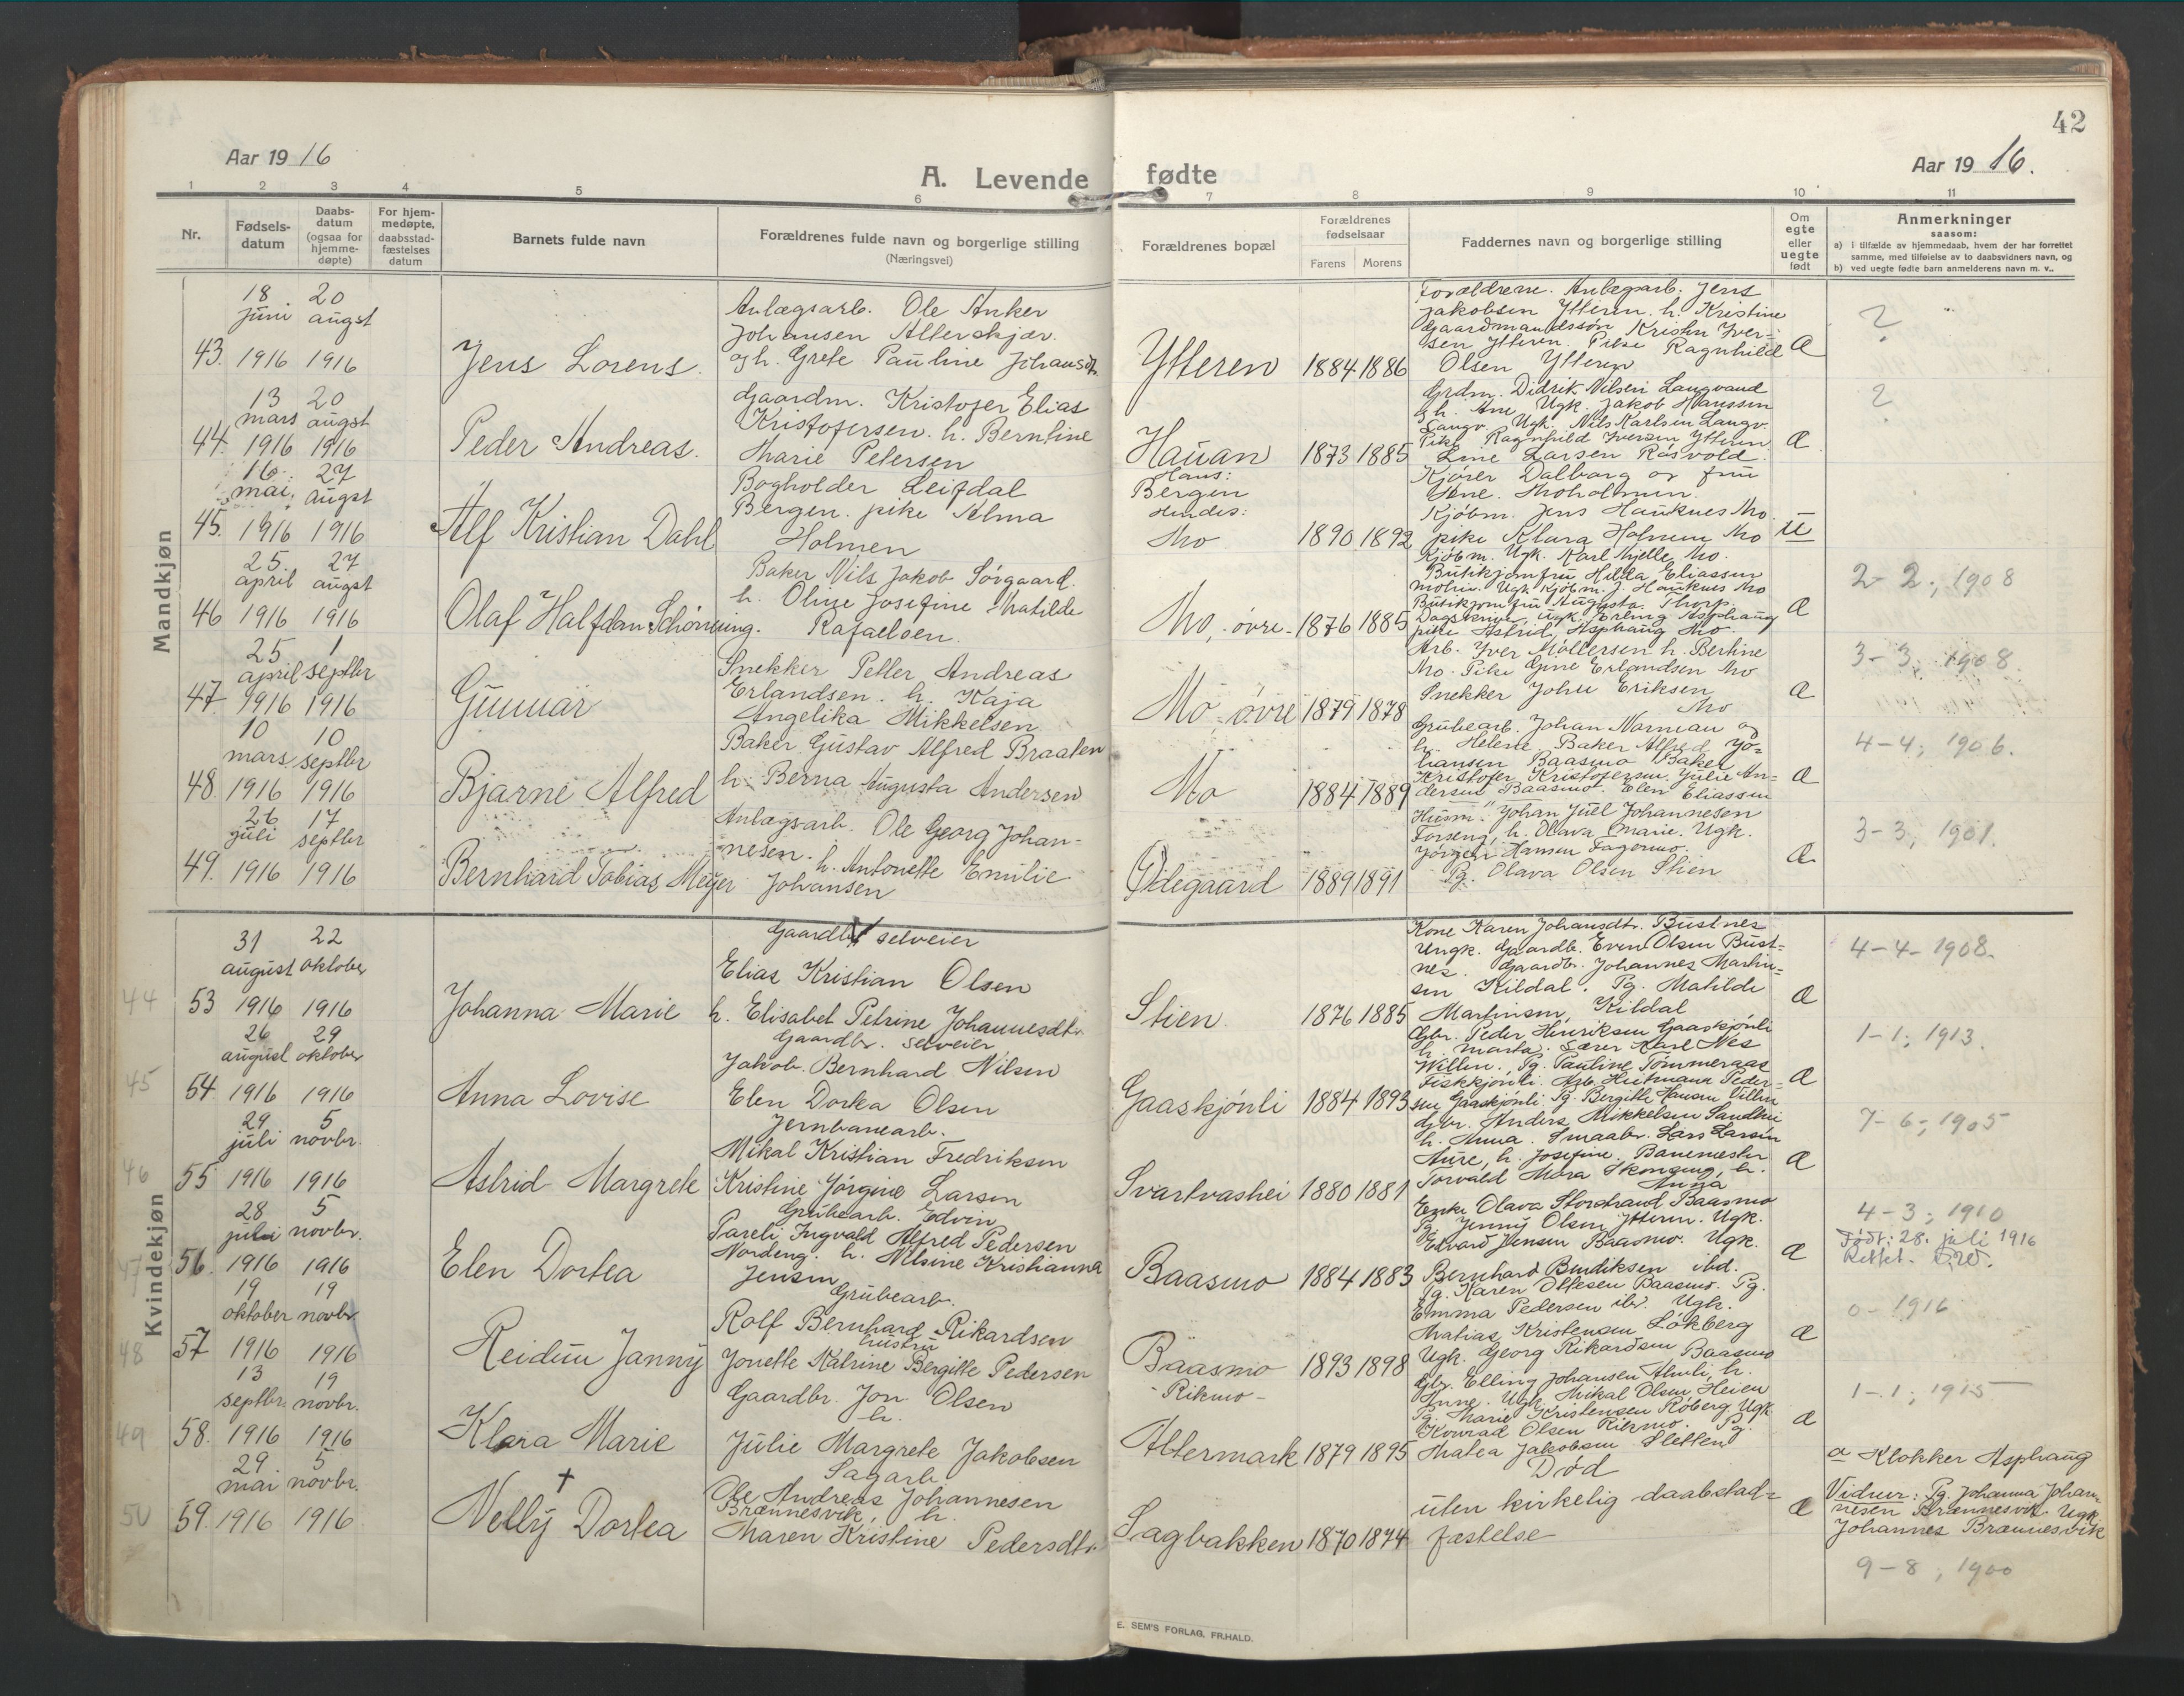 42
Aar 19 16
A. Levende fødte
Aar 19 16.
1 2 3 4 5 6 7 8 9 10 11
Nr.
Fødsels-
datum
Daabs-
datum
(ogsaa for
hjemme-
døpte)
For hjem-
medøpte,
daabsstad-
fæstelses
datum
Barnets fulde navn
Forældrenes fulde navn og borgerlige stilling
(Næringsvei)
Forældrenes bopæl
Forældrenes
fødselsaar
Farens Morens
Faddernes navn og borgerlige stilling
Om
egte
eller
uegte
født
Anmerkninger
saasom:
a) i tilfælde av hjemmedaab, hvem der har forrettet
samme, med tilføielse av to daabsvidners navn, og
b) ved uegte fødte barn anmelderens navn m. v..
Mandkjøn
18 20
juni augst
43. 1916 1916
Jens Lorens.
Anlægsarb. Ole Anker
Johansen Alterskjær.
og h. Grete Pauline Johansdt.
Ytteren 1884 1886
Forældrene. Anlægsarb. Jens
Jakobsen Ytteren. h. Kristine
Gaardmandssøn Kristen Iver-
sen Ytteren. Pike Ragnhild
Olsen Ytteren
Æ
?
13 20
mars augst
44. 1916 1916
Peder Andreas.
Gaardm. Kristofer Elias
Kristofersen. h. Berntine
Marie Petersen
Hauan 1873 1885
Grdm. Didrik Nilsen Langvand
og h. Ane Ugk. Jakob Hanssen
Langv. Ugk. Nils Karlsen Langv.
Pike Ragnhild Iversen Ytteren
Line Larsen Røsvold.
Æ
?
16. 27
mai. augst
45. 1916 1916
Alf Kristian Dahl
Bogholder Leif dal
Bergen. pike Alma
Holmen
Hans:
Bergen
Hendes:
Mo 1890 1892
Kjører Dalborg og fru
Ane. Moholmen.
Kjøbm. Jens Hauknes Mo.
pike Klara Holmen Mo
Kjøbm. Ugk. Karl Mjelle Mo.
U
25. 27
april augst
46 1916 1916
Olaf Halfdan Schønning.
Baker Nils Jakob Sørgaard.
h. Oline Josefine Matilde
Rafaelsen.
Mo, øvre. 1876 1885
Butikjomfru Hilda Eliassen
Ugk. Kjøbm. J. Hauknes Mo
Butikjomfru Augusta Thorp.
Ugk. Erling Asphaug
pike Astrid Asphaug Mo.
Æ
2-2; 1908
25 1
april septbr
47. 1916 1916
Gunnar
Snekker Petter Andreas
Erlandsen. h. Kaja
Angelika Mikkelsen
Mo, øvre 1879 1878
Arb. Iver Møllersen h. Bertine
Mo. Pike Gine Erlandsen Mo
Snekker Johu Eriksen
Mo
Æ
3-3; 1908.
10 10
mars septbr
48. 1916 1916
Bjarne Alfred
Baker Gustav Alfred Braaten
h. Berna Augusta Andersen
Mo 1884 1889
Grubearb. Johan Narmeau og
h. Helene. Baker Alfred Jo-
hansen Baasmo Baker
Kristofer Kristofersen. Julie An-
dersen Baasmo. Elen Eliassen
Æ
4-4; 1906.
26 17
juli septbr
49. 1916 1916
Bernhard Tobias Meyer
Anlægsarb. Ole Georg Johan-
nesen. h. Antonette Emilie
Johansen
Ødegaard 1889 1891
Husm. Johan Juel Johannesen
Forseng, h. Olava Marie. Ugk.
Jørgen Hansen Fagermo.
Pg. Olava Olsen Stien
Æ
3-3; 1901.
Kvindekjøn
31 22
august oktober
44 53 1916 1916
Johanna Marie
Gaardbr selveier
Elias Kristian Olsen
h. Elisabet Petrine Johannesdtr.
Stien. 1876 1885
Kone Karen Johansdtr. Bustnes
Ungk. Gaardb. Even Olsen Bust-
nes. Gaardbr. Johannes Martin-
sen Kildal. Pg. Matilde
Martinsen, Kildal
Æ
4-4-1908.
26 29
august oktober
45 54 1916 1916
Anna Lovise
Gaardbr. selveier
Jakob Bernhard Nilsen
Elen Dorka Olsen
Gaaskjønli 1884 1893
Gbr. Peder Henriksen Gaaskjønli
h. Marta. Lærer Karl Nes
Willen., Pg. Pauline Tømmeraas
Fiskkjønli. Arb. Hietmann Peder-
sen Gaaskjønli Pg. Bergitte Hansen Villen
Æ
1-1; 1913.
29 5
juli novbr.
46 55 1916 1916
Astrid Margrete
Jernbanearb.
Mikal Kristian Fredriksen
Kristine Jørgine Larsen
Svartvashei 1880 1881
Gbr. Anders Mikkelsen Sandhei
h. Anna. Smaabr. Lars Larsen
Aure, h. Josefine. Banemester
Torvald Mora Skonseng, h.
Anna
Æ
7-6; 1905
28 5
juli novbr.
47 56. 1916 1916
Elen Dortea
Grubearb. Edvin
Pareli Ingvald Alfred Pedersen
Nordeng. h. Nilsine Kristianna
Jensen
Baasmo 1884 1883
Enke Olava Storstrand Baasmo
Pg. Jenny Olsen Ytteren. Ugk.
Edvard Jensen Baasmo. Ugk.
Bernhard Bendiksen ibd.
Pg. Karen Ottesen Baasmo.
Æ
4-3; 1910
Født: 28. juli 1916
Rettet.
19 19
oktober novbr
48 57 1916 1916
Reidun Janny
Grubearb.
Rolf Bernhard Rikardsen
hustru
Jonette Katrine Bergitte Pedersen
Baasmo 1893 1898
- Rikmo -
Pg.
Emma Pedersen ibd. Ugk.
Matias Kristensen Løkberg
Ugk. Georg Rikardsen Baasmo
Æ
0-1916
13 19
septbr. novbr.
49 58. 1916 1916
Klara Marie
Gaardbr. Jon Olsen
h.
Julie Margrete Jakobsen
Altermark 1879 1895
Gbr. Elling Johansen h.
Anne. Ugk. Mikal Olsen, Heien
Pg. Marie Kristensen Røberg Ugk.
Konrad Olsen Rikmo. Pg.
Matea Jakobsen Sletten
Æ
1-1; 1915
29 5
mai novbr.
50 59. 1916 1916
†
Nelly Dortea
Sagarb
Ole Andreas Johannesen
Brænnesvik, h.
Maren Kristine Pedersdtr.
Sagbakken 1870 1874
Død
uten kirkelig daabstad-
fæstelse
Æ
a Klokker Asphaug
Vidner: Pg. Johanna Johan-
nesen Brænnesvik Ugk
Johannes Brænnesvik
9-8; 1900
E. SEM'S FORLAG, FR.HALD.